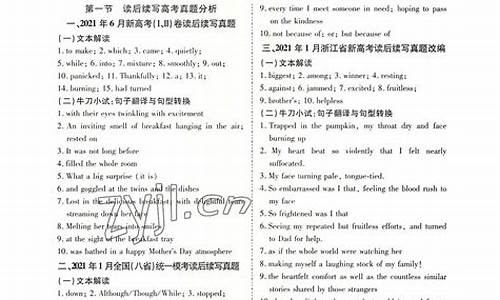 第一节 读后续写高考真题分析
一、2021年6月新高考(Ⅰ,Ⅱ)卷读后续写真题
(一)文本解读
1. to make; 2. which; 3. came; 4. quietly;
5. while; 6. into; 7. mixture; 8. smoothly; 9. out;
10. panicked; 11. Thankfully; 12. a; 13. it;
14. burning; 15. had turned
(二)牛刀小试:句子翻译与句型转换
1. with their eyes twinkling with excitement
2. An inviting smell of breakfast hanging in the air;
rested on
3. It was not long before
4. filled the whole room
5. What a big surprise (it is)
6. and goggled at the twins and the dishes
7. Lost in the delicious breakfast, with delightful tears
streaming down her face
8. Melting her tears into smiles
9. at the sight of the breakfast tray
10. was bathed in a happy Mother's Day atmosphere
二、2021年1月全国(八省)统一模考读后续写真题
(一)文本解读
1. down; 2. Although/Though/While; 3. stopped;
9. every time I meet someone in need; hoping to pass
on the kindness
10. not because of; or; but because of
三、2021年1月浙江省新高考读后续写真题改编
(一)文本解读
1. biggest; 2. among; 3. winner; 4. resting;
5. against; 6. jammed; 7. excited; 8. fruitless;
9. brother's; 10. helpless
(二)牛刀小试:句子翻译与句型转换
1. Trapped in the pumpkin, my throat dry and face
burning up
2. My heart beat so violently that I felt nearly
suffocated.
3. My face turning pale, tongue-tied.
4. So embarrassed was I that, feeling the blood rush to
my face
5. So frightened was I that
6. Seeing my repeated but fruitless efforts, and turned
to Dad for help.
7. as if the whole world were watching her
8. making myself a laughing stock of my family!
9. the heartfelt comfort as well as the countless similar
stories shared by those strangers
zyjl.cn